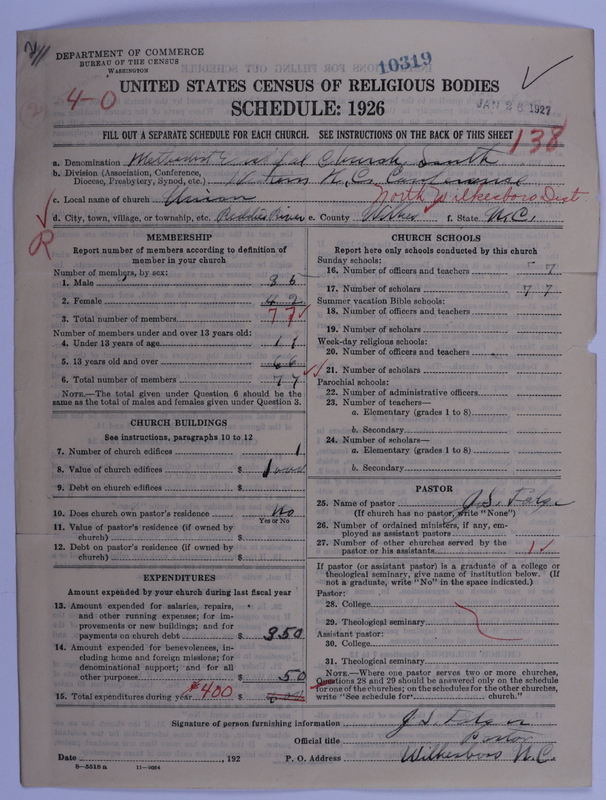 DEPARTMENT OF COMMERCE
BUREAU OF THE CENSUS
WASHINGTON
10319
4-0
UNITED STATES CENSUS OF RELIGIOUS BODIES
SCHEDULE: 1926
JAN 28 1927
FILL OUT A SEPARATE SCHEDULE FOR EACH CHURCH. SEE INSTRUCTIONS ON THE BACK OF THIS SHEET
138
a. Denomination Methodist Episcopal Church, South
b. Division (Association, Conference,
Diocese, Presbytery, Synod, etc.) Western N.C. Conference
c. Local name of church Union North Wilkesboro Dist
d. City, town, village, or township, etc. Reddies River e. County Wilkes f. State N.C.
R
MEMBERSHIP
Report number of members according to definition of
member in your church
Number of members, by sex:
1. Male 35
2. Female 42
3. Total number of members 77
Number of members under and over 13 years old:
4. Under 13 years of age 11
5. 13 years old and over 66
6. Total number of members 77
NOTE.—The total given under Question 6 should be the
same as the total of males and females given under Question 3.
CHURCH BUILDINGS
See instructions, paragraphs 10 to 12
7. Number of church edifices 1
8. Value of church edifices $ 1000
9. Debt on church edifices $
10. Does church own pastor's residence No
Yes or No
11. Value of pastor's residence (if owned by
church) $
12. Debt on pastor's residence (if owned by
church) $
EXPENDITURES
Amount expended by your church during last fiscal year
13. Amount expended for salaries, repairs,
and other running expenses; for im-
provements or new buildings; and for
payments on church debt $ 350
14. Amount expended for benevolences, in-
cluding home and foreign missions; for
denominational support; and for all
other purposes $ 50
15. Total expenditures during year $400 $
CHURCH SCHOOLS
Report here only schools conducted by this church
Sunday schools:
16. Number of officers and teachers 7
17. Number of scholars 77
Summer vacation Bible schools:
18. Number of officers and teachers
19. Number of scholars
Week-day religious schools:
20. Number of officers and teachers
21. Number of scholars
Parochial schools:
22. Number of administrative officers
23. Number of teachers—
a. Elementary (grades 1 to 8)
b. Secondary
24. Number of scholars—
a. Elementary (grades 1 to 8)
b. Secondary
PASTOR
25. Name of pastor J. S. Folger
(If church has no pastor, write "None")
26. Number of ordained ministers, if any, em-
ployed as assistant pastors
27. Number of other churches served by the
pastor or his assistants 1
If pastor (or assistant pastor) is a graduate of a college or
theological seminary, give name of institution below. (If
not a graduate, write "No" in the space indicated.)
Pastor:
28. College
29. Theological seminary
Assistant pastor:
30. College
31. Theological seminary
NOTE.—Where one pastor serves two or more churches,
Questions 28 and 29 should be answered only on the schedule
for one of the churches; on the schedules for the other churches,
write "See schedule for church."
Signature of person furnishing information J. S. Folger
Official title Pastor
Date , 192 P. O. Address Wilkesboro N.C.
8—5518 a 11—9064